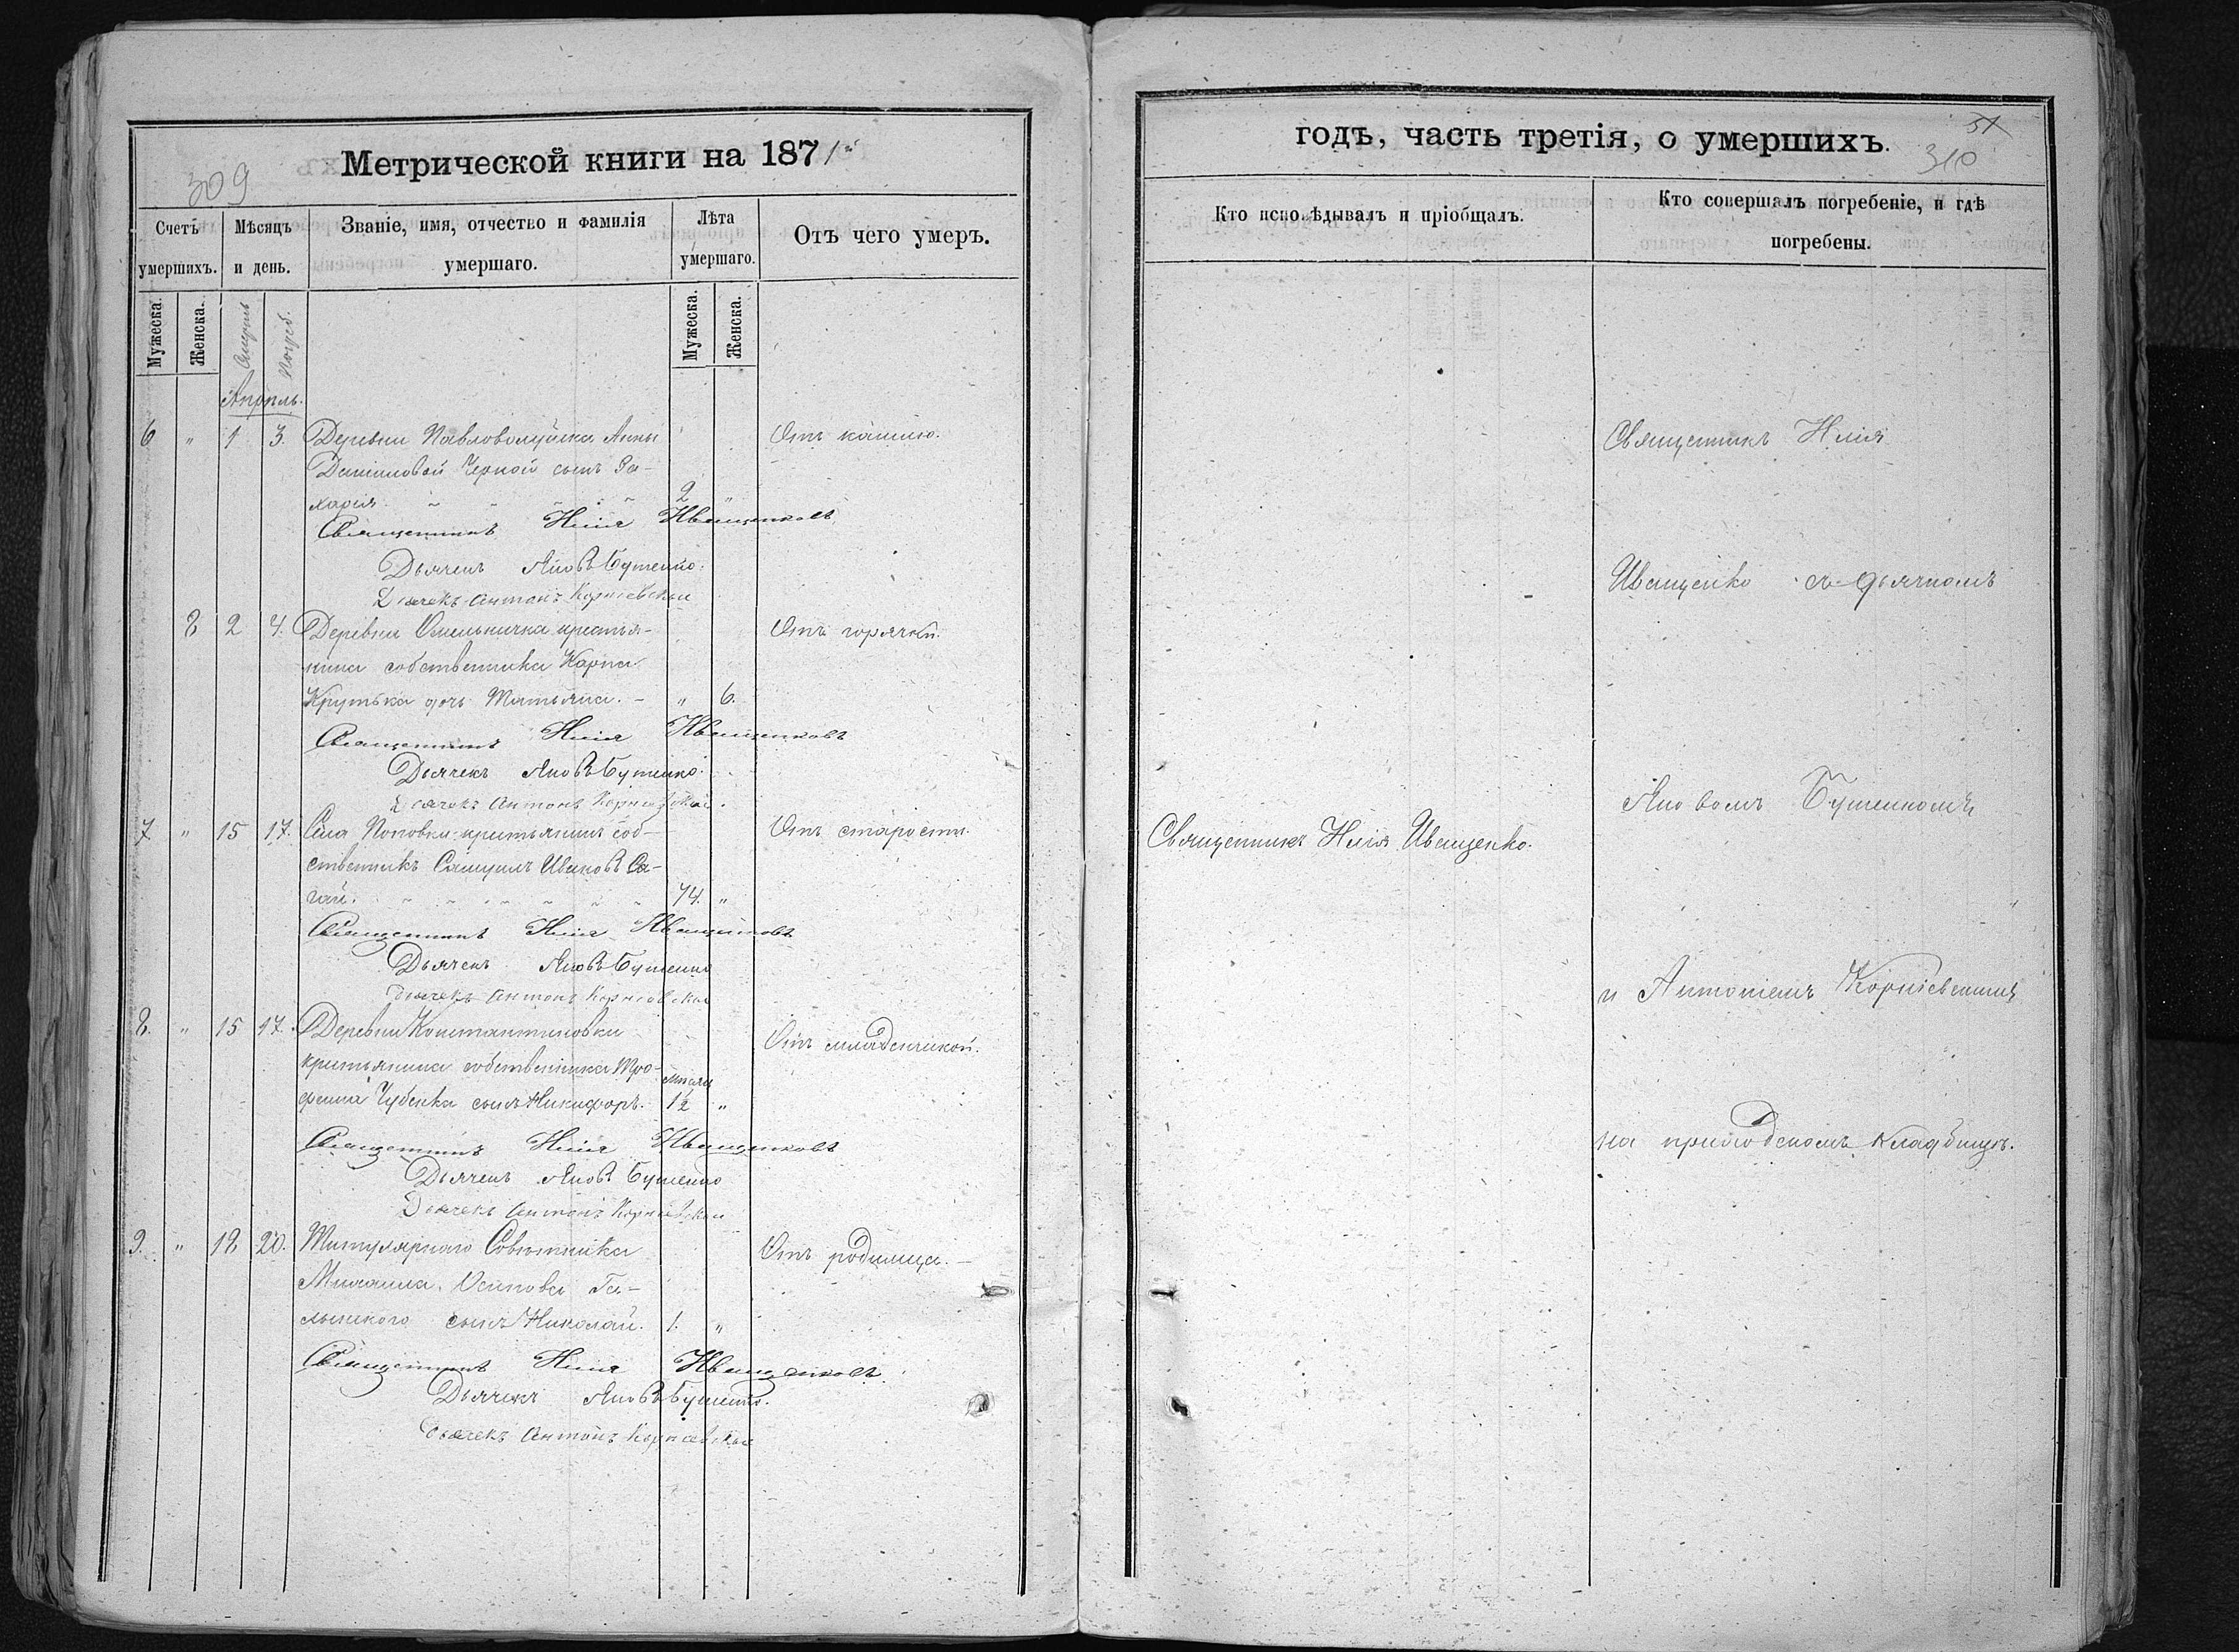 Метрической книги на 1871й
309
Счетъ умершихъ.
Мѣсяцъ и день.
Званіе, имя, отчество и фамилія умершаго.
Лѣта умершаго.
Отъ чего умеръ.
Мужеска
Женска.
Смерть
Погреб.
Мужеска.
Женска.
Апрѣль.
6 " 1 3. Деревни Анны Отъ кашлю.
Даміановой Черной сынъ За-
харія 2 "
Священникъ Илія Иващенковъ
Дьячекъ Яковъ Бутенко.
Дьячекъ Антонъ Корніевскій
8 2 4. Деревни Омельничка крестья- Отъ горячки.
нина собственника Карпа
Крутька дочь Татьяна. - " 6.
Священникъ Илія Иващенковъ
Дьячекъ Яковъ Бутенко.
Дьячекъ Антонъ Корніевскій.
7 " 15 17. Села Поповки крестьянинъ соб- Отъ старости.
ственникъ Самуилъ Ивановъ Са-
гай. 74. "
Священникъ Илія Иващенковъ
Дьячекъ Яковъ Бутенко
Дьячекъ Антонъ Корніевскій
8. " 15 17. Деревни Константиновки Отъ младенчикой.
крестьянина собственника Тро-
фима Чубенка сынъ Никифоръ. мѣсяц 1/2 "
Священникъ Илія Иващенковъ
Дьячекъ Яковъ Бутенко
Дьячекъ Антонъ Корніевскій
9. " 18 20. Титулярнаго Совѣтника Отъ родимца. -
Михаила Осипова Га-
сынъ Николай. 1. "
Священникъ Илія Иващенковъ.
Дьячекъ Яковъ Бутенко.
Дьячекъ Антонъ Корніевскій
годъ, часть третія, о умершихъ.
51
310
Кто исповѣдывалъ и пріобщалъ.
Кто совершалъ погребеніе, и гдѣ погребены.
Священникъ Илія
Иващенко съ дьячкомъ
Яковомъ Бутенкомъ
Священникъ Илія Иващенко.
и Антоніемъ Корніевскимъ
на приходскомъ кладбищѣ.